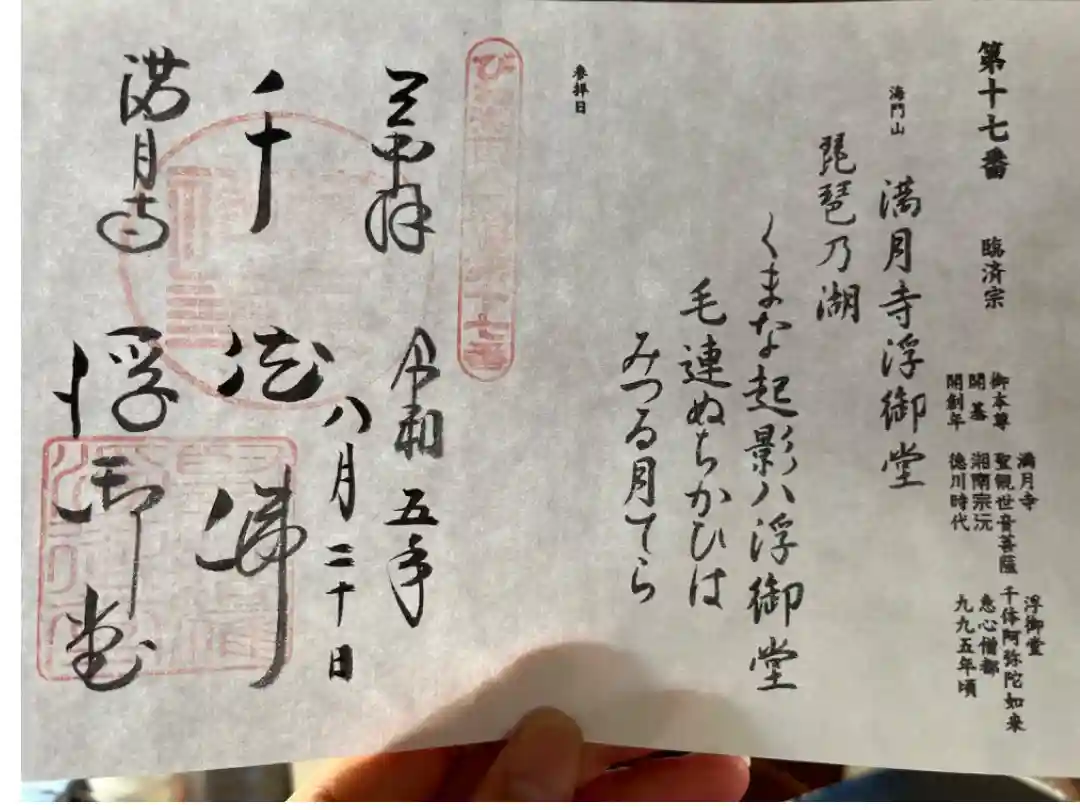 第十七番 臨済宗
満月寺 浮御堂
御本尊 聖観世音菩薩 千体阿弥陀如来
開基 湘南宗沅 恵心僧都
開創年 徳川時代 九九五年頃
海門山 満月寺浮御堂
琵琶乃湖
くまな起影八浮御堂
毛連ぬちかひは
みつる月てら
参拝日
十七番
奉拝 令和五年
八月二十日
千体佛
満月寺 浮御堂